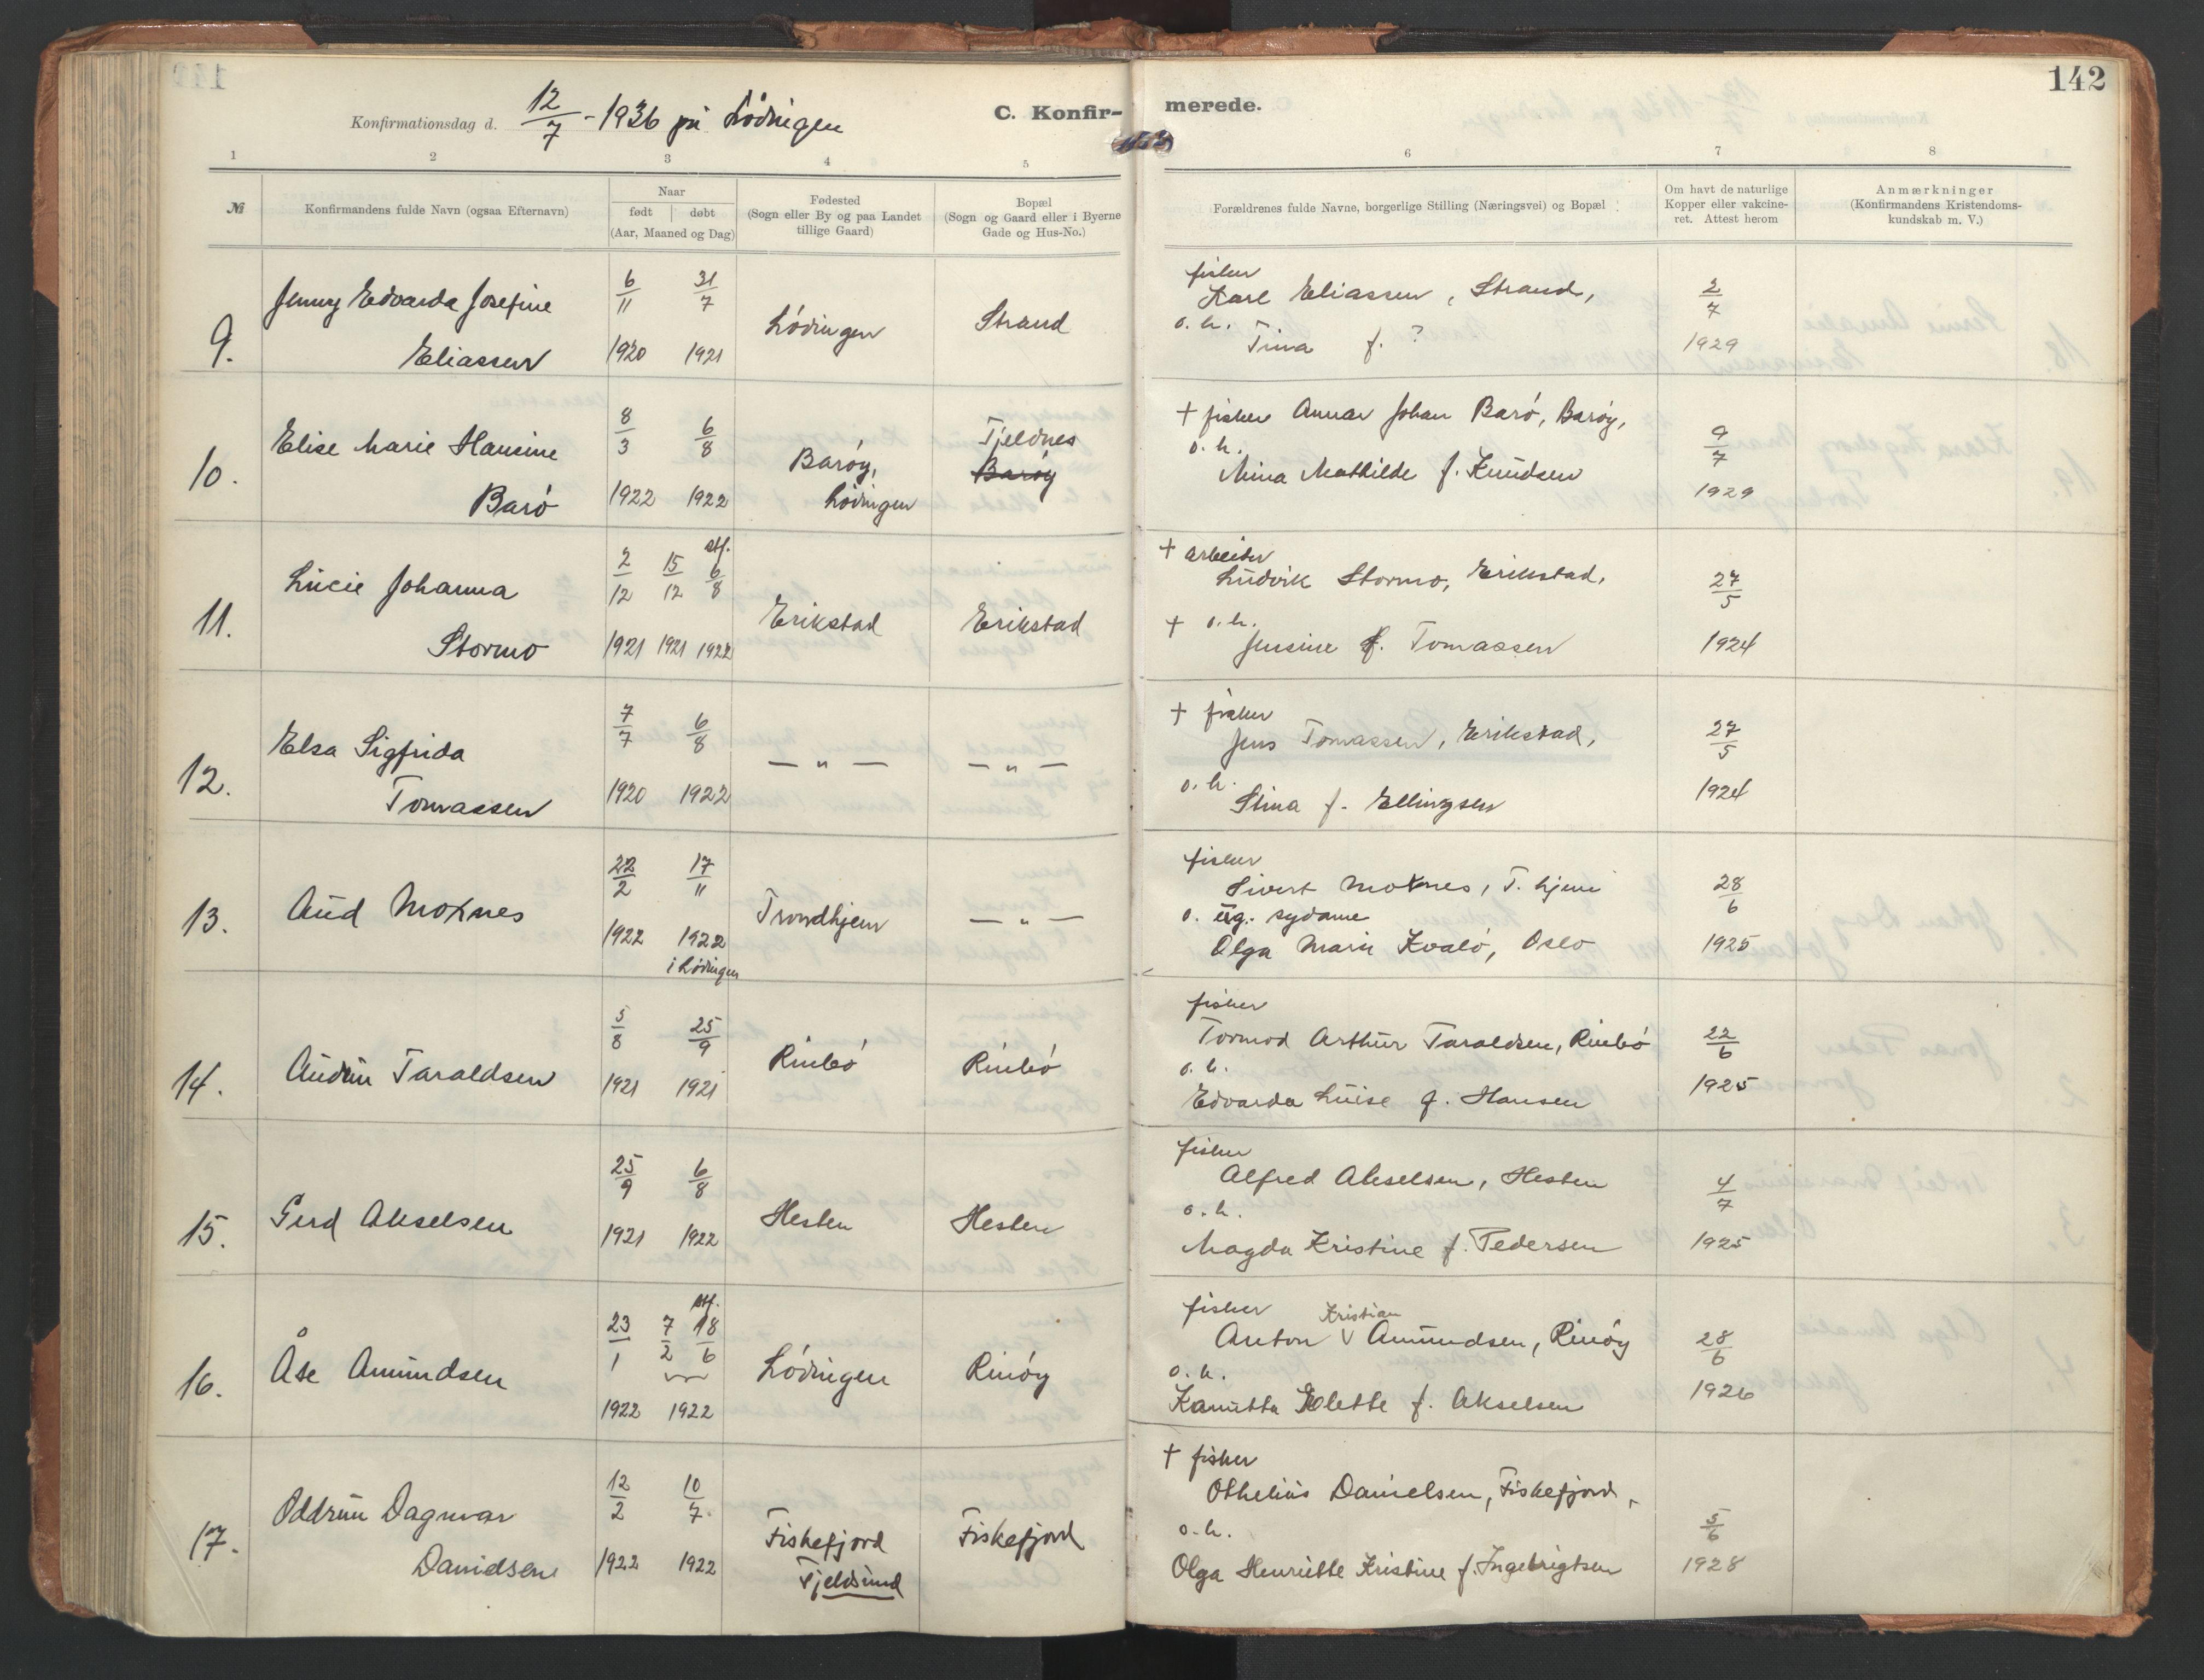 142
Konfirmationsdag d. 12/7 - 1936 på Lødingen
C. Konfir-
merede.
1 2 3 4 5 6 7 8
№
Konfirmandens fulde Navn (ogsaa Efternavn)
Naar
født døbt
(Aar, Maaned og Dag)
Fødested
(Sogn eller By og paa Landet
tillige Gaard)
Bopæl
(Sogn og Gaard eller i Byerne
Gade og Hus-No.)
Forældrenes fulde Navne, borgerlige Stilling (Næringsvei) og Bopæl
Om havt de naturlige
Kopper eller vakcine-
ret. Attest herom
Anmærkninger
(Konfirmandens Kristendoms-
kundskab m. V.)
9.
Jenny Edvarda Josefine
Eliassen
6/11 31/7
1920 1921
Lødingen
Strand
fisker
Karl Eliassen, Strand,
o. h.
Tina f. ?
2/7
1929
10.
Elise Marie Hansine
Barø
8/3 6/8
1922 1922
Barøy,
Lødingen
Tjeldnes
Barøy
+ fisker Annar Johan Barø, Barøy,
o. h.
Mina Mathilde f. Knudsen
9/7
1929
11.
Lucie Johanna
Stormo
stf.
2/12 15/12 6/8
1921 1921 1922
Erikstad
Erikstad
+ arbeider
Ludvik Stormo, Erikstad,
+ o. h.
Jensine f. Tomassen
27/5
1924
12.
Elsa Sigfrida
Tomassen
7/7 6/8
1920 1922
— " —
— " —
+ fisker
Jens Tomassen, Erikstad,
o. h.
Stina f. Ellingsen
27/5
1924
13.
Aud Moxnes
22/2 17/11
1922 1922
i Lødingen
Trondhjem
— " —
fisker
Sivert Moxnes, T. hjem
o. ug. sydame
Olga Marie Kvalø, Oslo
28/6
1925
14.
Audun Taraldsen
5/8 25/9
1921 1921
Rinbø
Rinbø
fisker
Tormod Arthur Taraldsen, Rinbø
o. h.
Edvarda Luise f. Hansen
22/6
1925
15.
Gerd Akselsen
25/9 6/8
1921 1922
Hesten
Hesten
fisker
Alfred Akselsen, Hesten
o. h.
Magda Kristine f. Pedersen
4/7
1925
16.
Åse Amundsen
stf.
23/1 7/2 18/6
1922 1922
Lødingen
Rinøy
fisker Kristian
Anton V Amundsen, Rinøy
o. h.
Kanutta Elette f. Akselsen
28/6
1926
17.
Oddrun Dagmar
Danielsen
12/2 10/7
1922 1922
Fiskefjord
Tjeldsund
Fiskefjord
+ fisker
Othelius Danielsen, Fiskefjord,
o. h.
Olga Henriette Kristine f. Ingebrigtsen
5/6
1928